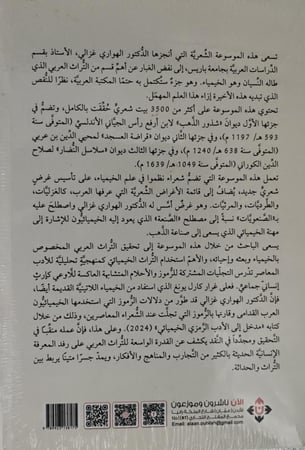 تسعى هذه الموسوعة الشعريّة التي أنجزها الدّكتور الهواري غزالي، الأستاذ بقسم
الدّراسات العربيّة بجامعة باريس، إلى نفض الغبار عن أهمّ قسم من التّراث العربي الذي
طاله النّسيان، وهو الخيمياء. وهو جزءٌ ستُكتمل به حتمًا المكتبة العربيّة، نظرًا للنّقص
الذي تبديه هذه الأخيرة إزاء هذا العلم المهمّل.
تحتوي هذه الموسوعة على أكثر من 3500 بيت شعري حُقّقت بالكامل، وتضمّ في
جزئها الأوّل ديوان «شذور الذّهب» لابن أرفع رأس الجيّاني الأندلسيّ (المتوفى سنة
593 هـ/ 1197 م)، وفي جزئها الثّاني ديوان «قراضة العسجد» لمحيي الدّين بن عربي
(المتوفى سنة 638 هـ/ 1240 م)، وفي جزئها الثالث ديوان «سلاسل النُّضار» لصلاح
الدّين الكوراني (المتوفى سنة 1049 هـ/ 1639 م).
تعمل هذه الموسوعة التي تضمّ شعراء نظموا في علم الخيمياء، على تأسيس غرضٍ
شعريّ جديد، يُضاف إلى قائمة الأغراض الشّعريّة التي عرفها العرب، كالغزليّات،
والطّرديّات، والمرثيّات. وهو غرضٌ أسّس له الدّكتور الهواري غزالي واصطلح عليه
بـ«الصّنعويّات» نسبةً إلى مصطلح «الصّنعة» الذي يعود إليه الخيميائيون للإشارة إلى
مهنة الخيميائي الذي يسعى إلى صناعة الذّهب.
يسعى الباحث من خلال هذه الموسوعة إلى تحقيق التّراث العربي المخصوص
بالخيمياء وبعثه وإحيائه، والأهمّ استخدام التّراث الخيميائي كمنهجيّة تحليليّة للأدب
المعاصر تدّرس التجليات المشتركة للرّموز والأحلام المتشابهة العاكسة للّاوعي كإرثٍ
إنسانيّ جماعيّ. فعلى غرار كارل يونغ الذي استفاد من الخيمياء اللاتينية القديمة أيضًا،
فإنّ الدّكتور الهواري غزالي قد طوّر من دلالات الرّموز التي استخدمها الخيميائيّون
العرب القدامى وقارنها بالرّموز التي تجلّت عند الشّعراء المعاصرين، وذلك من خلال
كتابه «مدخل إلى الأدب الرّمزي الخيميائي» (2024). وعلى هذا، فإنّ عمله منقّبًا في
التّحقيق ومجدّدًا في النّقد يكشف عن قدرة الواسعة للتّراث العربي على رفد المعرفة
الإنسانيّة الحديثة بالكثير من التّجارب والمناهج والأفكار، ويمدّ جسرًا متينًا يربط بين
التّراث والحداثة.
الآن ناشرون وموزعون